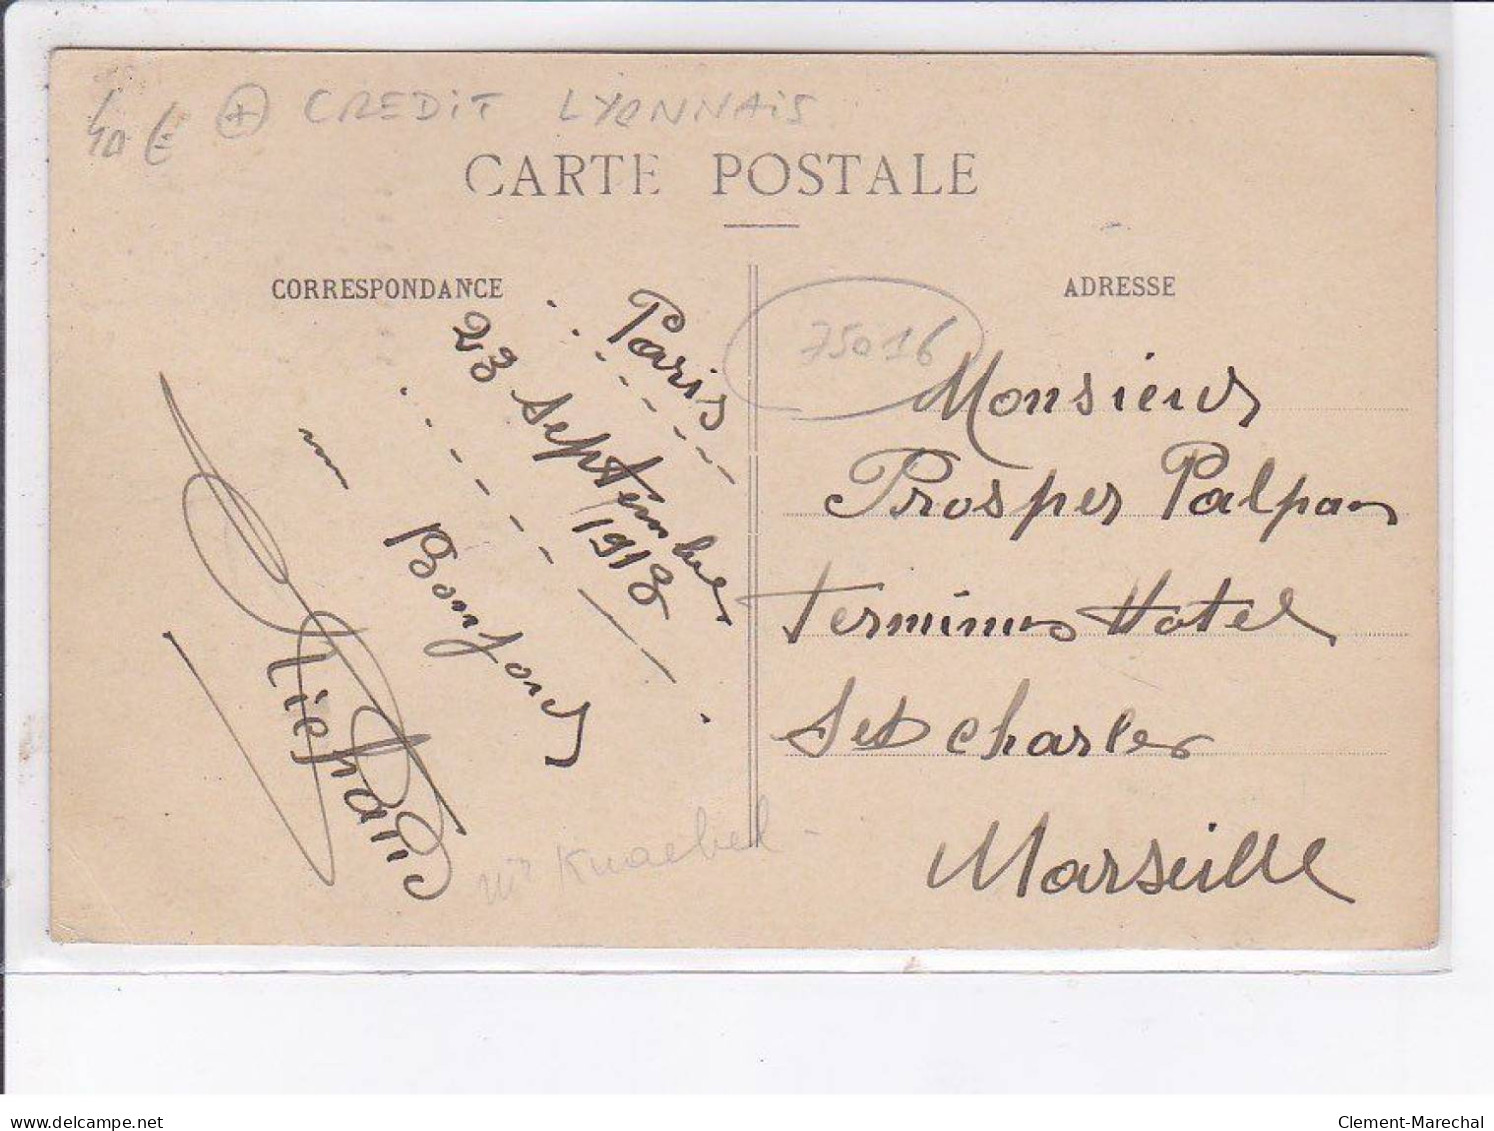 40€ + CREDIT LYONNAIS
CARTE POSTALE
CORRESPONDANCE
Paris
23 Septembre
1918
Bonjour
ADRESSE
75016
Monsieur
Prosper Palpan
Terminus Hotel
St Charles
Marseille
mr Knaebel
delcampe.net
Clement-Marechal